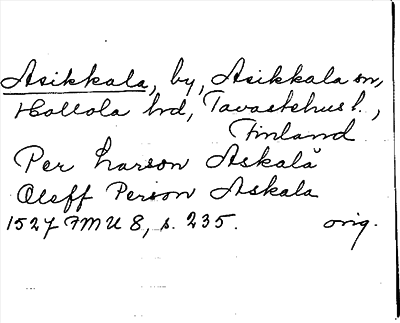 Asikkala, by, Asikkala sn,
Hollola hd, Tavastehus l.,
Finland
Per Larson Askala
Oleff Person Askala
1527 FMU 8, s. 235. orig.